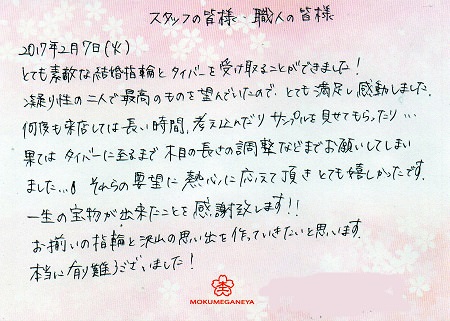 スタッフの皆様・職人の皆様
2017年2月7日(火)
とても素敵な結婚指輪とタイバーを受け取ることができました!
凝り性の二人で最高のものを望んでいたので、とても満足し感動しました。
何度も来店しては長い時間、考え込んだりサンプルを見せてもらったり…
果てはタイバーに至るまで木目の長さの調整などまでお願いしてしまい
ました…。それらの要望に熱心に応えて頂きとても嬉しかったです。
一生の宝物が出来たことを感謝致します!!
お揃いの指輪と沢山の思い出を作っていきたいと思います。
本当に有難うございました!
MOKUMEGANEYA